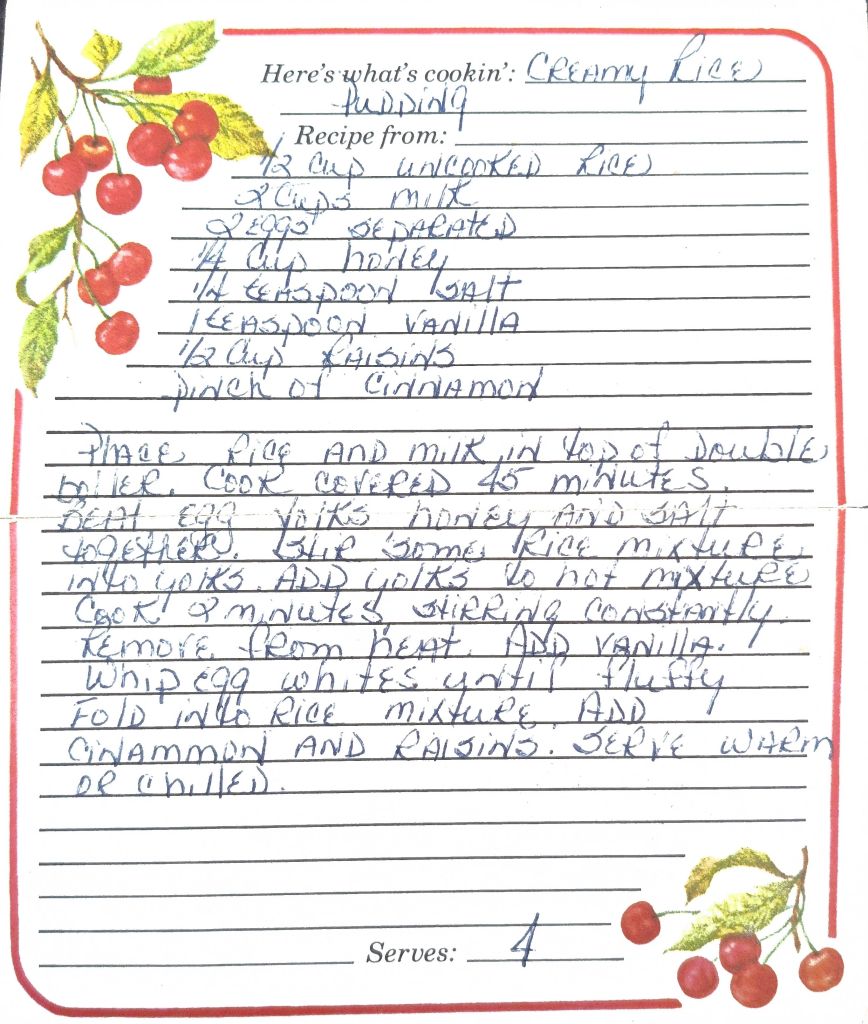 Here's what's cookin': Creamy Rice
Pudding
Recipe from:
1/2 Cup uncooked Rice
2 Cups milk
2 Eggs separated
1/4 Cup honey
1/4 teaspoon salt
1 teaspoon vanilla
1/2 Cup Raisins
pinch of Cinnamon
Place Rice and milk in top of double
boiler. Cook covered 45 minutes.
Beat egg yolks honey and salt
together. Stir some rice mixture
into yolks. Add yolks to hot mixture
Cook 2 minutes, stirring constantly.
Remove from heat. Add vanilla.
Whip egg whites until fluffy
Fold into rice mixture. Add
cinammon and raisins. Serve warm
or chilled.
Serves: 4